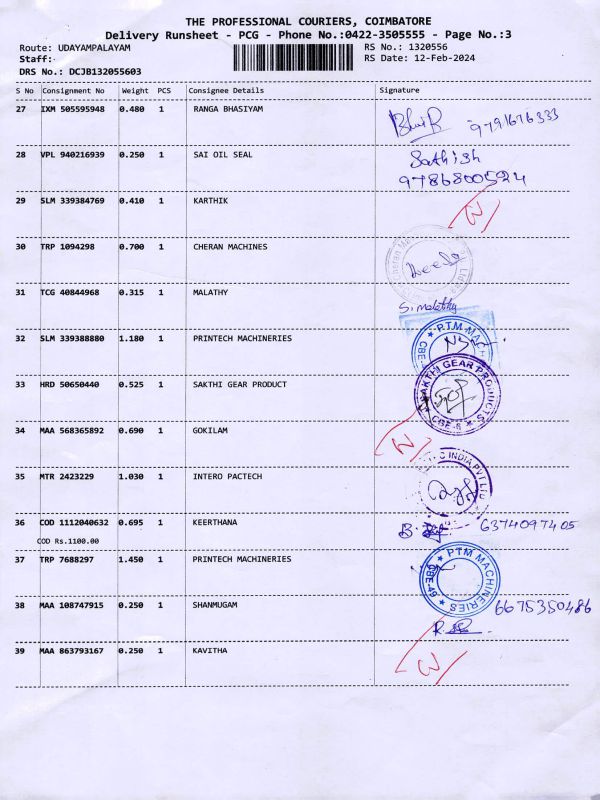 THE PROFESSIONAL COURIERS, COIMBATORE
Delivery Runsheet - PCG - Phone No.:0422-3505555 - Page No.:3
Route: UDAYAMPALAYAM RS No.: 1320556
Staff: RS Date: 12-Feb-2024
DRS No.: DCJB132055603
S No Consignment No Weight PCS Consignee Details Signature
27 IXM 505595948 0.480 1 RANGA BHASIYAM 9791676333
28 VPL 940216939 0.250 1 SAI OIL SEAL Sathish
9786800524
29 SLM 339384769 0.410 1 KARTHIK
30 TRP 1094298 0.700 1 CHERAN MACHINES
31 TCG 40844968 0.315 1 MALATHY S. malathy
32 SLM 339388880 1.180 1 PRINTECH MACHINERIES PTM MACH CBE
33 HRD 50650440 0.525 1 SAKTHI GEAR PRODUCT SAKTHI GEAR PRODUCTS CBE-6
34 MAA 568365892 0.690 1 GOKILAM
35 MTR 2423229 1.030 1 INTERO PACTECH C INDIA PVT LTD
36 COD 1112040632 0.695 1 KEERTHANA B. 6374097405
COD Rs.1100.00
37 TRP 7688297 1.450 1 PRINTECH MACHINERIES PTM MACHINERIES CBE-49
38 MAA 108747915 0.250 1 SHANMUGAM 6675350486
39 MAA 863793167 0.250 1 KAVITHA